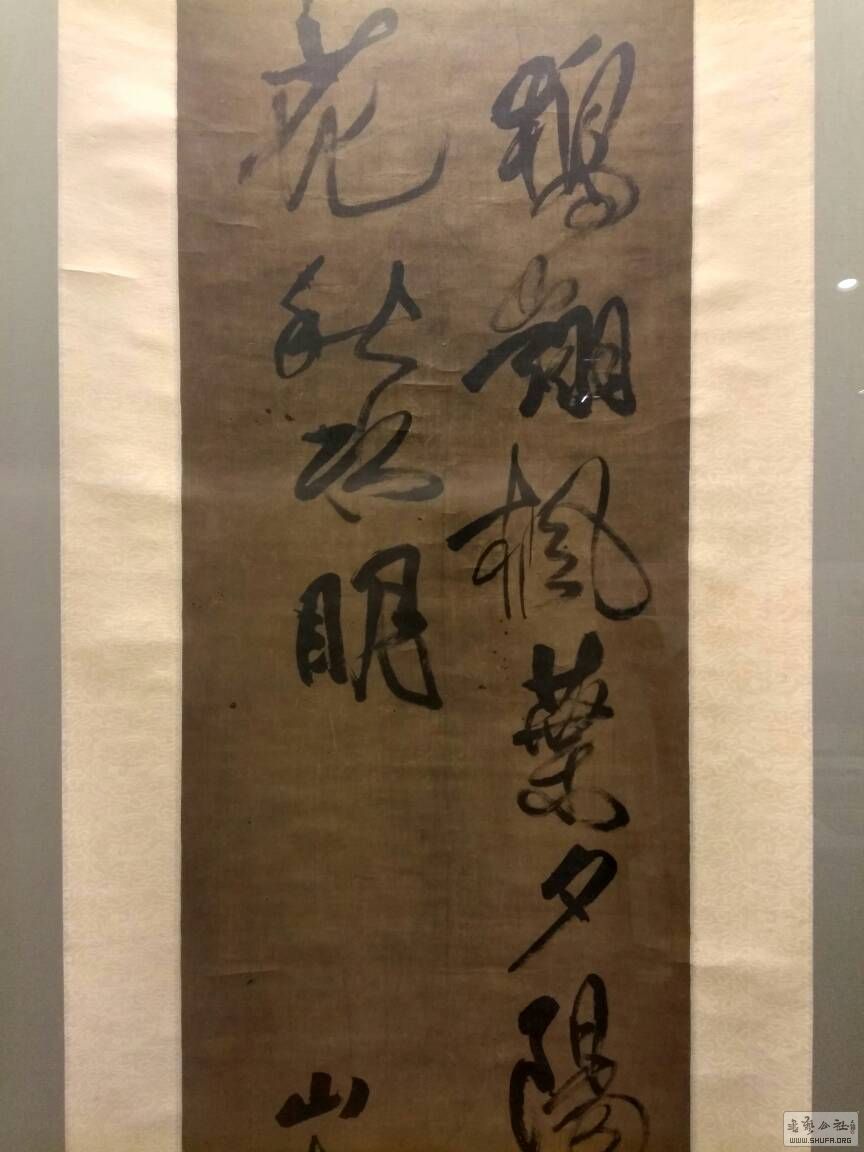 鴉翻楓葉夕陽
花秋水明
山
書法公社
WWW.SHUFA.ORG